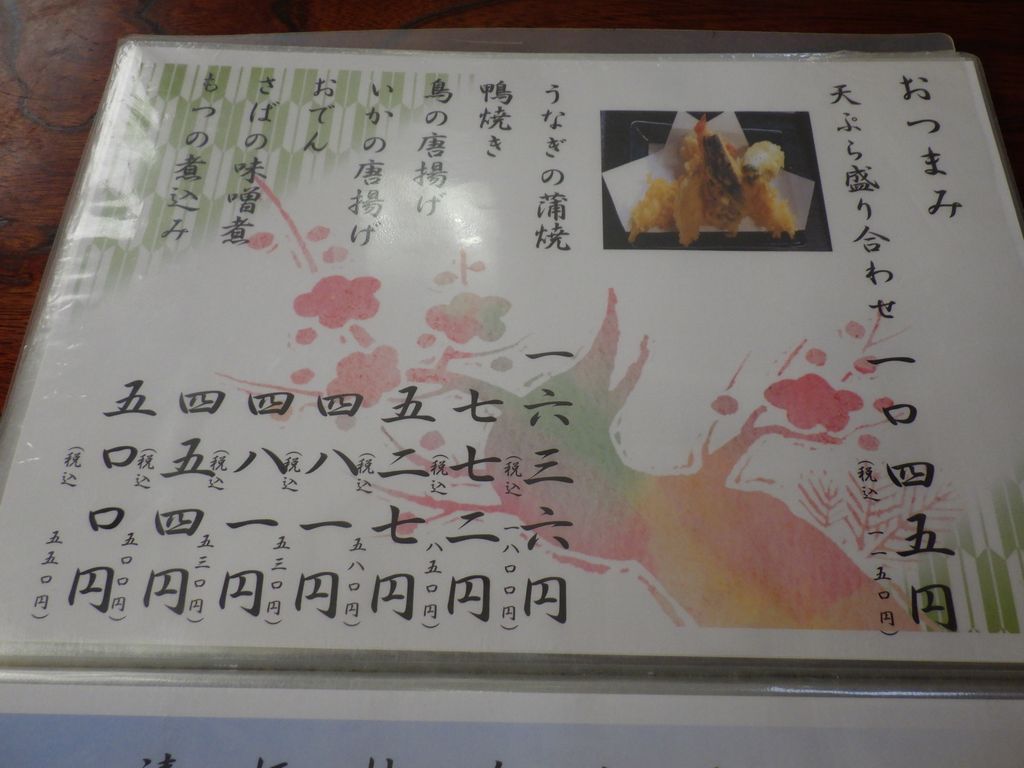 おつまみ
天ぷら盛り合わせ 一〇四五円
(税込 一一五〇円)
うなぎの蒲焼 一六三六円
(税込 一八〇〇円)
鴨焼き 七七二円
(税込 八五〇円)
鳥の唐揚げ 五二七円
(税込 五八〇円)
いかの唐揚げ 四八一円
(税込 五三〇円)
おでん 四八一円
(税込 五三〇円)
さばの味噌煮 四五四円
(税込 五〇〇円)
もつの煮込み 五〇〇円
(税込 五五〇円)